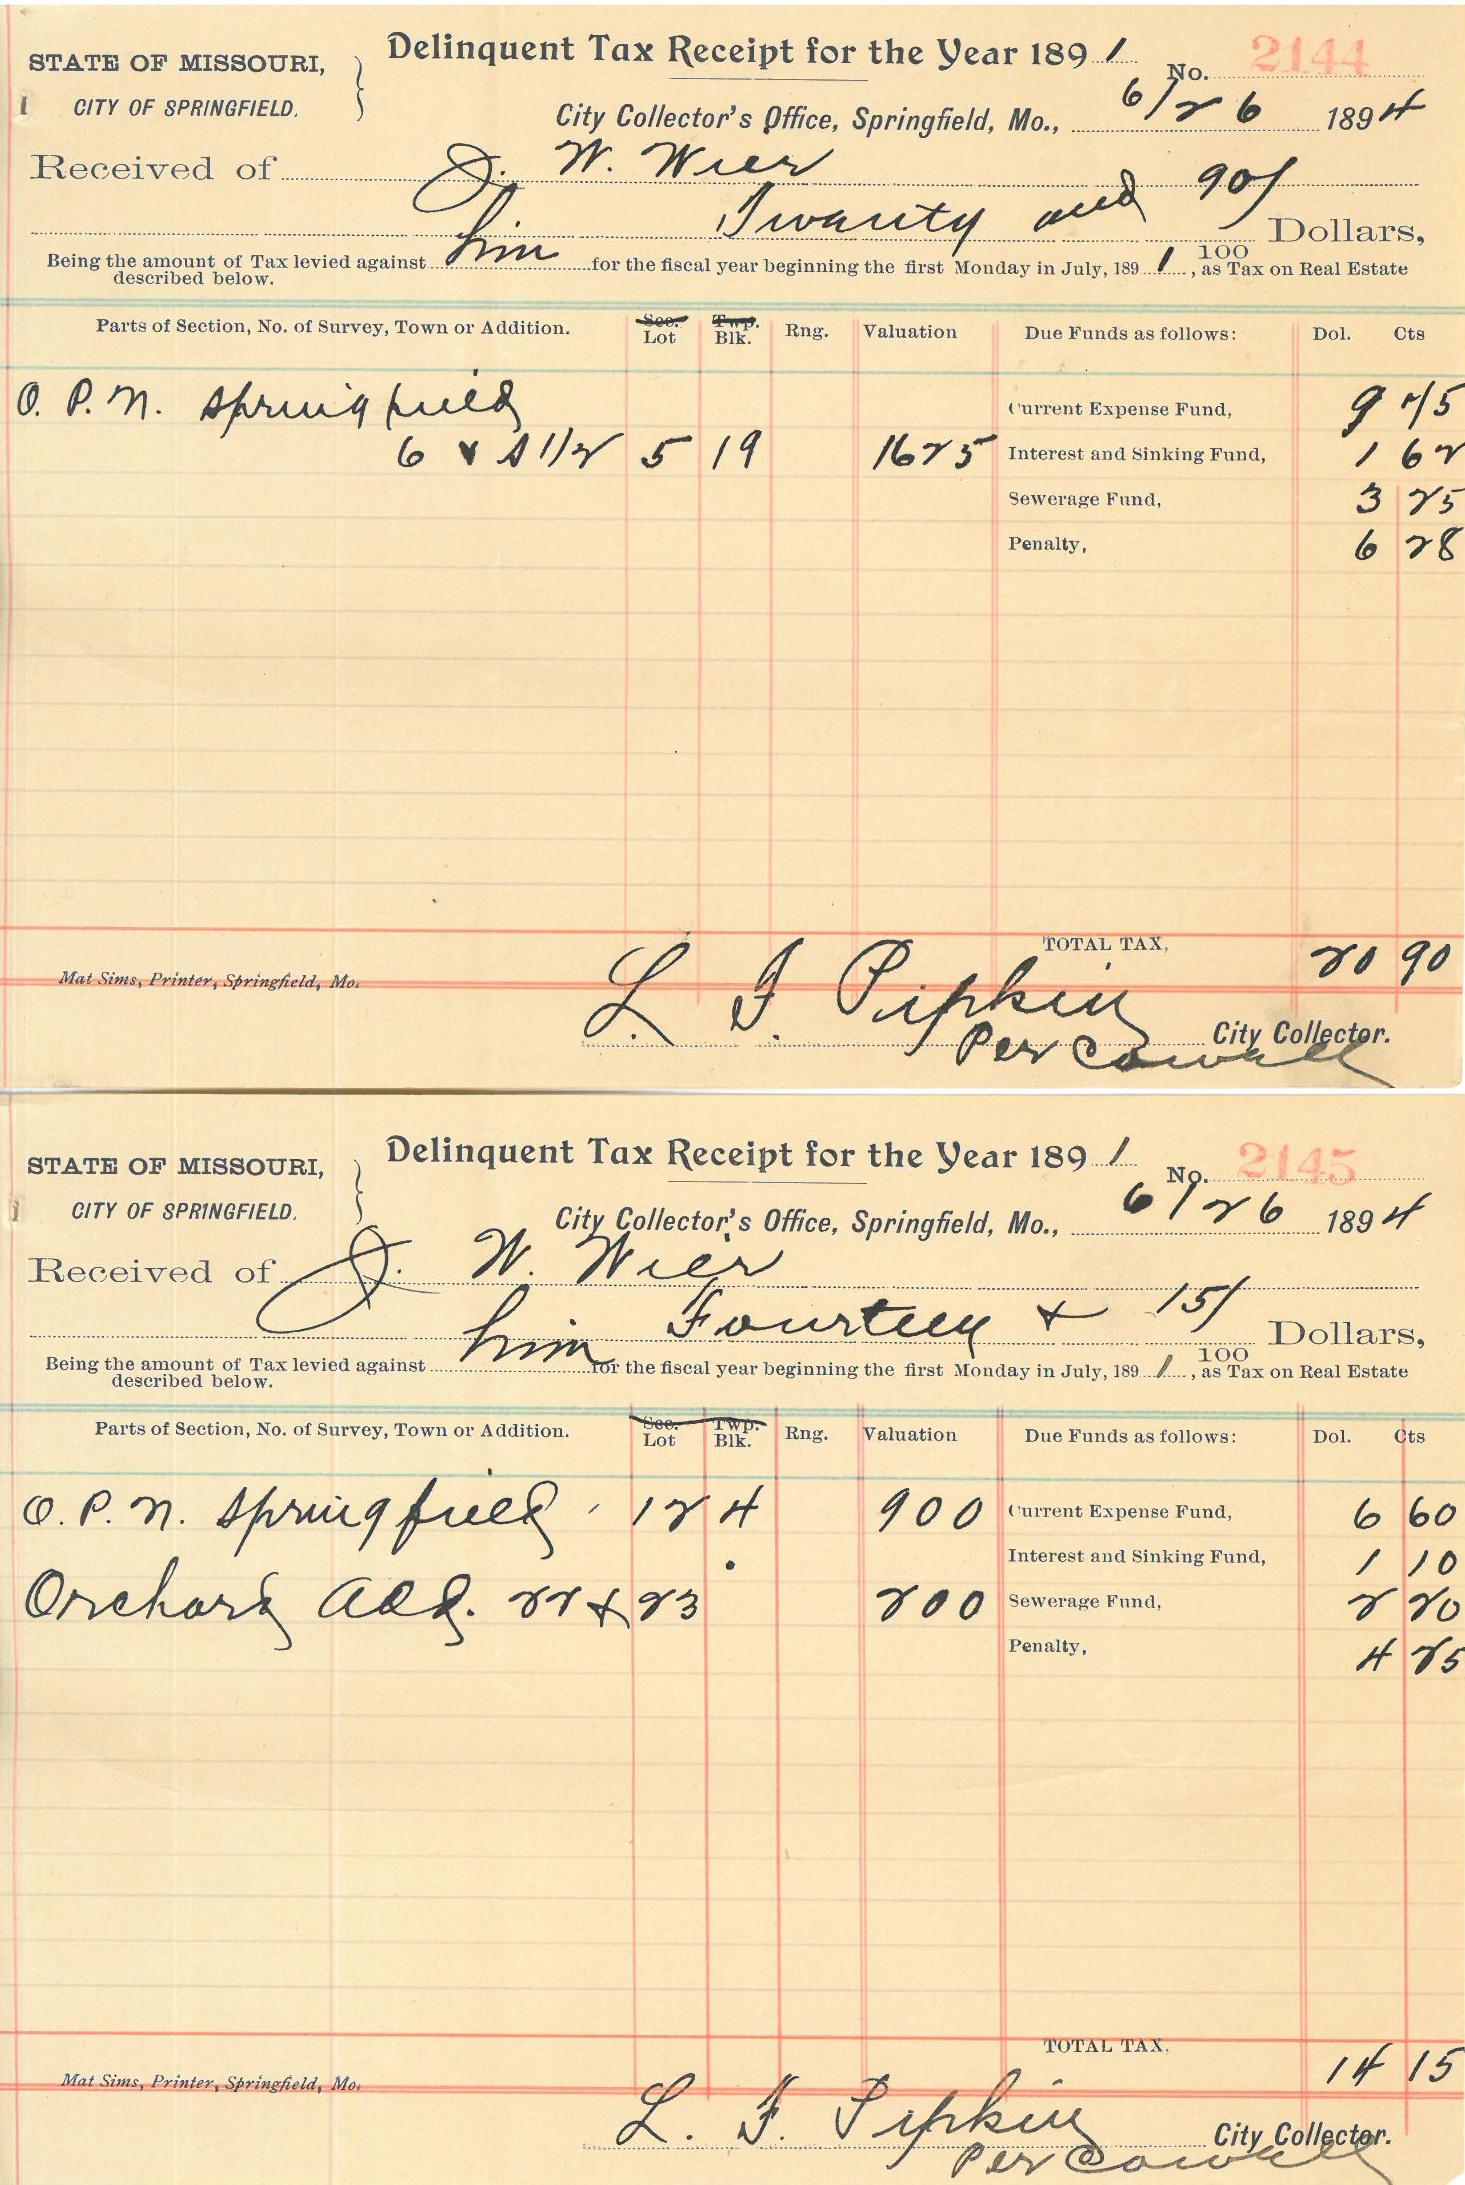 Delinquent Tax Receipt for the Year 1891
No. 2144
STATE OF MISSOURI,
CITY OF SPRINGFIELD.
City Collector's Office, Springfield, Mo., 6/26 1894
Received of J. W. Wier
Twenty and 90/100 Dollars,
Being the amount of Tax levied against him for the fiscal year beginning the first Monday in July, 1891, as Tax on Real Estate
described below.
Parts of Section, No. of Survey, Town or Addition. Sec. Lot Twp. Blk. Rng. Valuation Due Funds as follows: Dol. Cts
O. P. N. Springfield Current Expense Fund, 9 75
6 & S 1/2 5 19 1625 Interest and Sinking Fund, 1 62
Sewerage Fund, 3 25
Penalty, 6 28
TOTAL TAX, 20 90
Mat Sims, Printer, Springfield, Mo.
L. F. Pipkin City Collector.
Per Cowell
Delinquent Tax Receipt for the Year 1891
No. 2145
STATE OF MISSOURI,
CITY OF SPRINGFIELD.
City Collector's Office, Springfield, Mo., 6/26 1894
Received of J. W. Wier
Fourteen & 15/100 Dollars,
Being the amount of Tax levied against him for the fiscal year beginning the first Monday in July, 1891, as Tax on Real Estate
described below.
Parts of Section, No. of Survey, Town or Addition. Sec. Lot Twp. Blk. Rng. Valuation Due Funds as follows: Dol. Cts
O. P. N. Springfield 12 4 900 Current Expense Fund, 6 60
Interest and Sinking Fund, 1 10
Orchard Add. 22 & 23 200 Sewerage Fund, 2 20
Penalty, 4 25
TOTAL TAX, 14 15
Mat Sims, Printer, Springfield, Mo.
L. F. Pipkin City Collector.
Per Cowell